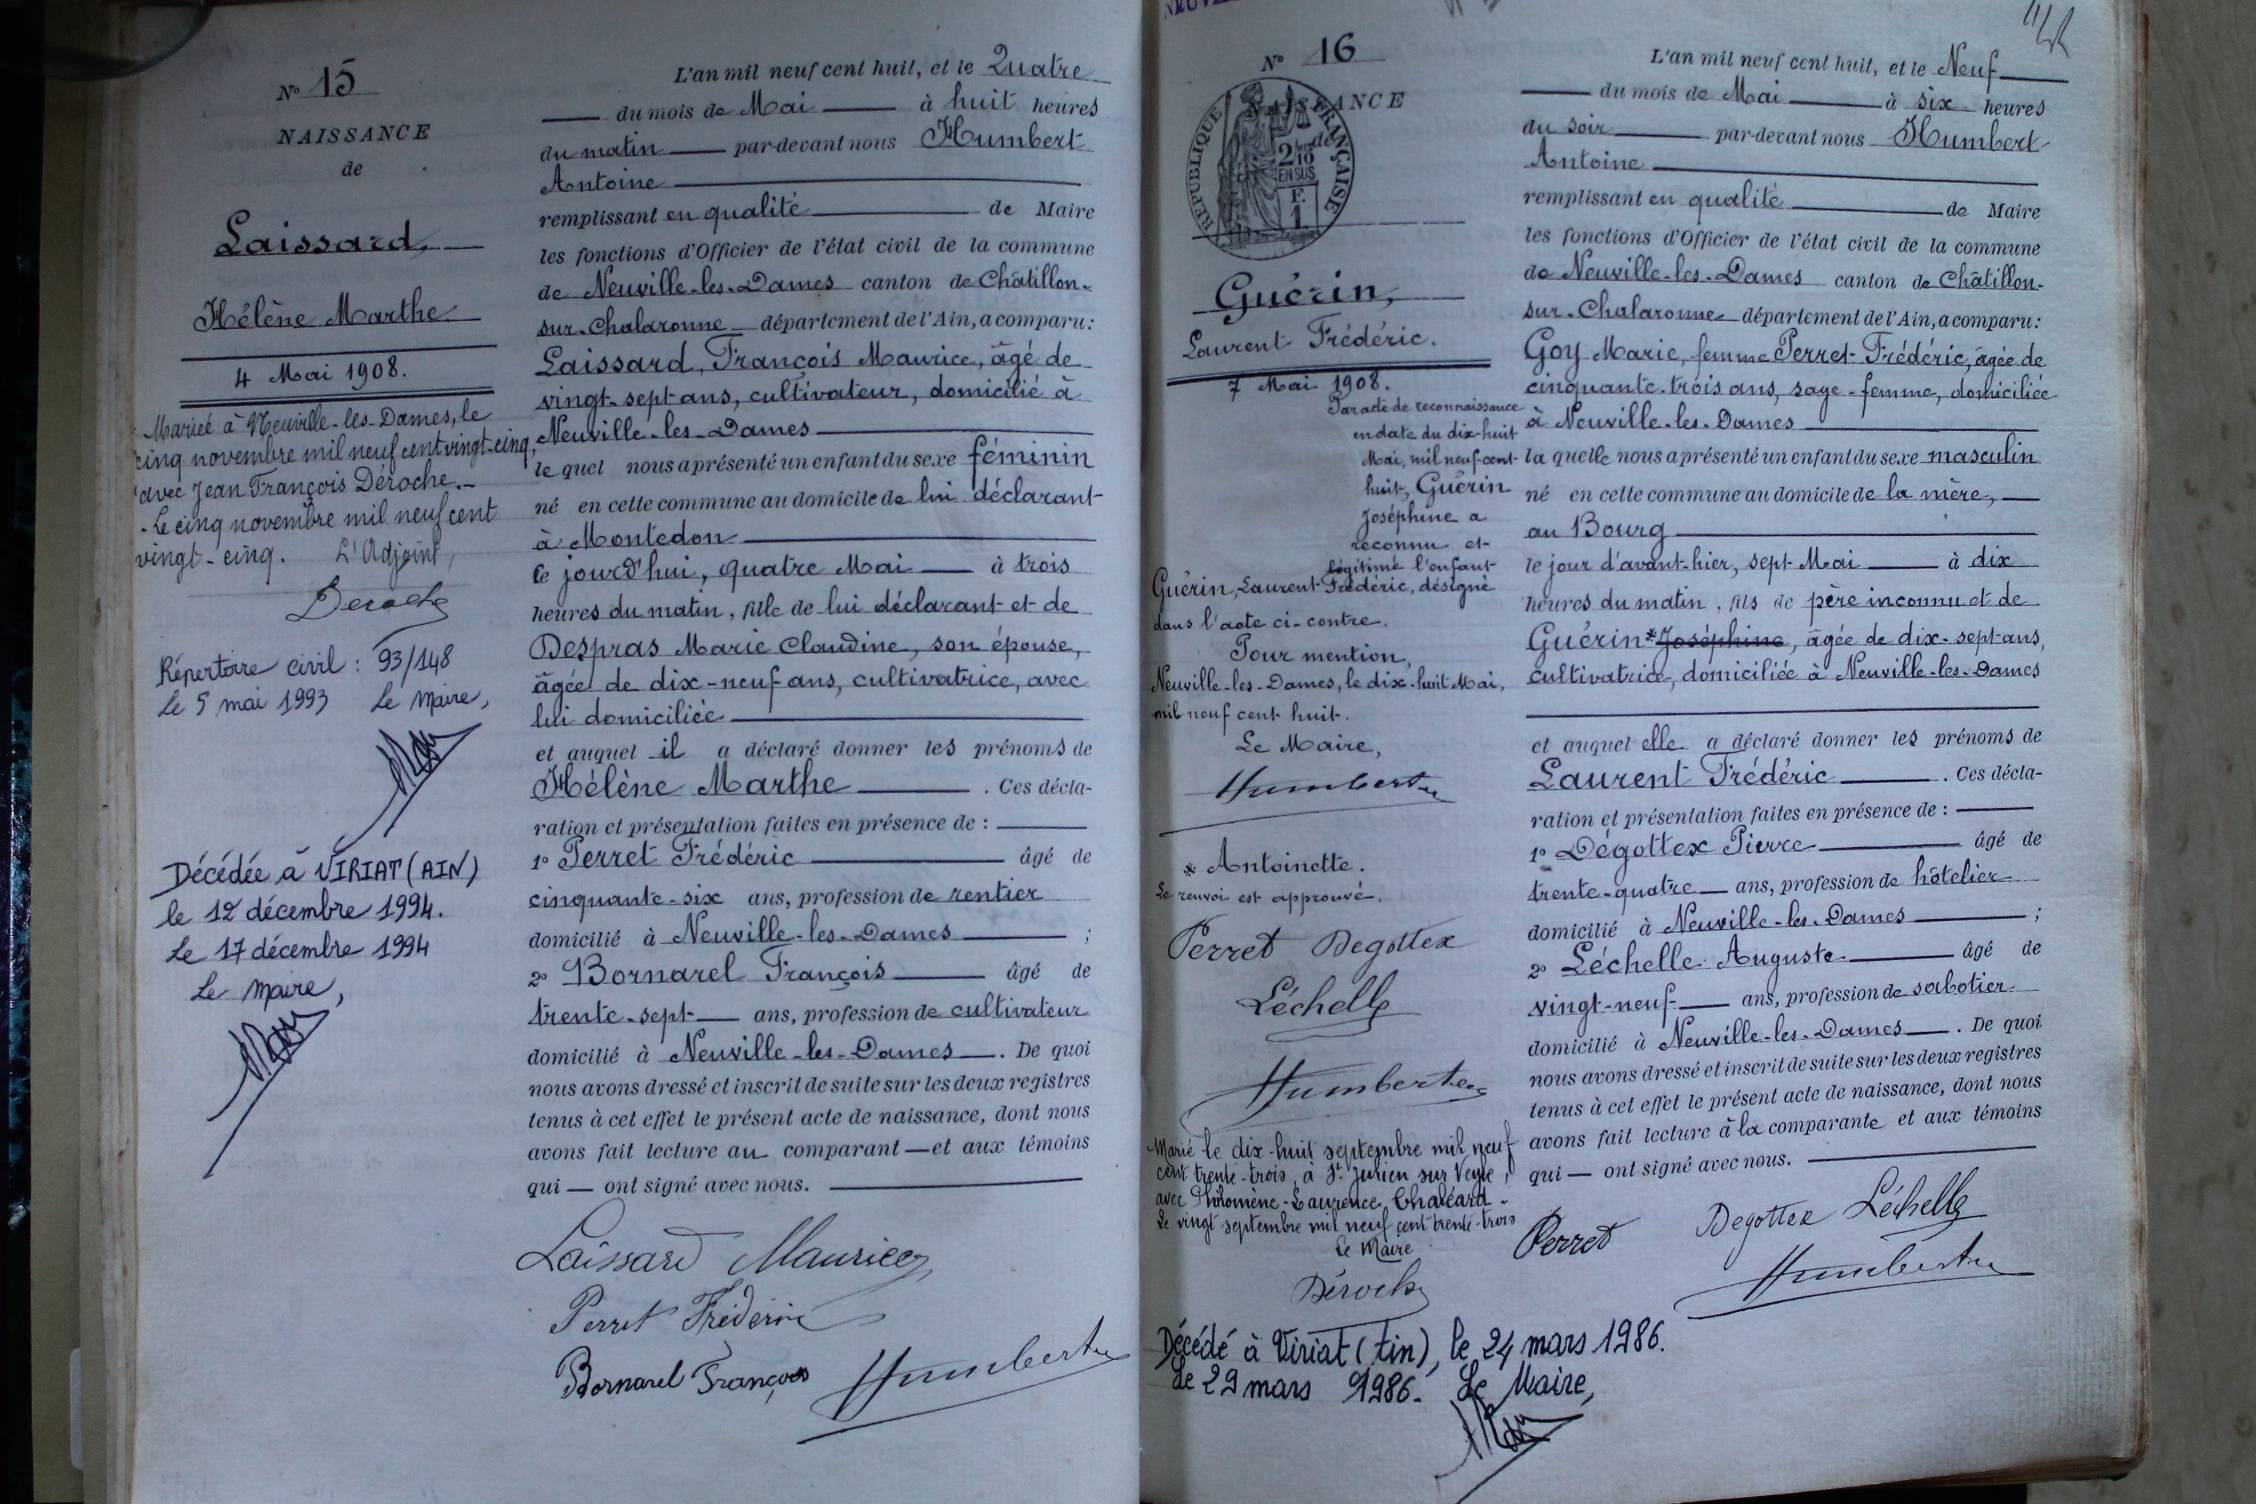 N° 15
NAISSANCE
de
Laissard,
Hélène Marthe
4 Mai 1908.
Mariée à Neuville-les-Dames, le
cinq novembre mil neuf cent vingt-cinq,
avec Jean François Déroche.-
- Le cinq novembre mil neuf cent
vingt-cinq. L'Adjoint,
Deroche
Répertoire civil : 93/148
Le 5 mai 1993 Le Maire,
Décédée à VIRIAT (AIN)
le 12 décembre 1994.
Le 17 décembre 1994
Le Maire,
L'an mil neuf cent huit, et le Quatre
du mois de Mai à huit heures
du matin par-devant nous Humbert
Antoine
remplissant en qualité de Maire
les fonctions d'Officier de l'état civil de la commune
de Neuville-les-Dames canton de Châtillon-
sur-Chalaronne département de l'Ain, a comparu :
Laissard, François Maurice, âgé de
vingt-sept ans, cultivateur, domicilié à
Neuville-les-Dames
le quel nous a présenté un enfant du sexe féminin
né en cette commune au domicile de lui déclarant
à Montedon
le jourd'hui, quatre Mai à trois
heures du matin, fille de lui déclarant et de
Despras Marie Claudine, son épouse,
âgée de dix-neuf ans, cultivatrice, avec
lui domiciliée
et auquel il a déclaré donner les prénoms de
Hélène Marthe . Ces décla-
ration et présentation faites en présence de :
1° Perret Frédéric âgé de
cinquante-six ans, profession de rentier
domicilié à Neuville-les-Dames ;
2° Bornarel François âgé de
trente-sept ans, profession de cultivateur
domicilié à Neuville-les-Dames . De quoi
nous avons dressé et inscrit de suite sur les deux registres
tenus à cet effet le présent acte de naissance, dont nous
avons fait lecture au comparant — et aux témoins
qui — ont signé avec nous.
Laissard Maurice
Perret Frédéric
Bornarel François Humbert
N° 16
NAISSANCE
de
RÉPUBLIQUE FRANÇAISE
2/10 EN SUS
F. 1
Guérin,
Laurent Frédéric.
7 Mai 1908.
Par acte de reconnaissance
en date du dix-huit
Mai, mil neuf cent
huit, Guérin
Joséphine a
reconnu et
légitimé l'enfant
Guérin, Laurent Frédéric, désigné
dans l'acte ci-contre.
Pour mention,
Neuville-les-Dames, le dix-huit Mai,
mil neuf cent huit.
Le Maire,
Humbert
* Antoinette.
Le renvoi est approuvé.
Perret Degottex
Léchelle
Humbert
Marié le dix-huit septembre mil neuf
cent trente-trois, à St Julien sur Veyle,
avec Philomène-Laurence Chaléard -
Le vingt septembre mil neuf cent trente-trois
Le Maire
Déroche
Décédé à Viriat (Ain), le 24 mars 1986.
Le 29 mars 1986. Le Maire,
L'an mil neuf cent huit, et le Neuf
du mois de Mai à six heures
du soir par-devant nous Humbert
Antoine
remplissant en qualité de Maire
les fonctions d'Officier de l'état civil de la commune
de Neuville-les-Dames canton de Châtillon-
sur-Chalaronne département de l'Ain, a comparu :
Goy Marie, femme Perret Frédéric, âgée de
cinquante-trois ans, sage-femme, domiciliée
à Neuville-les-Dames
la quelle nous a présenté un enfant du sexe masculin
né en cette commune au domicile de la mère,
au Bourg
le jour d'avant-hier, sept Mai à dix
heures du matin, fils de père inconnu et de
Guérin * Joséphine, âgée de dix-sept ans,
cultivatrice, domiciliée à Neuville-les-Dames
et auquel elle a déclaré donner les prénoms de
Laurent Frédéric . Ces décla-
ration et présentation faites en présence de :
1° Dégottex Pierre âgé de
trente-quatre ans, profession de hôtelier
domicilié à Neuville-les-Dames ;
2° Léchelle Auguste âgé de
vingt-neuf ans, profession de sabotier
domicilié à Neuville-les-Dames . De quoi
nous avons dressé et inscrit de suite sur les deux registres
tenus à cet effet le présent acte de naissance, dont nous
avons fait lecture à la comparante et aux témoins
qui — ont signé avec nous.
Perret Degottex Léchelle
Humbert